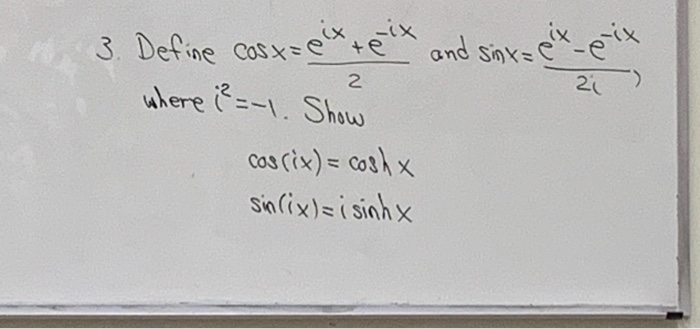 3. Define cosx = (e^ix + e^-ix)/2 and sinx = (e^ix - e^-ix)/2i,
where i² = -1. Show
cos(ix) = cosh x
sin(ix) = i sinh x